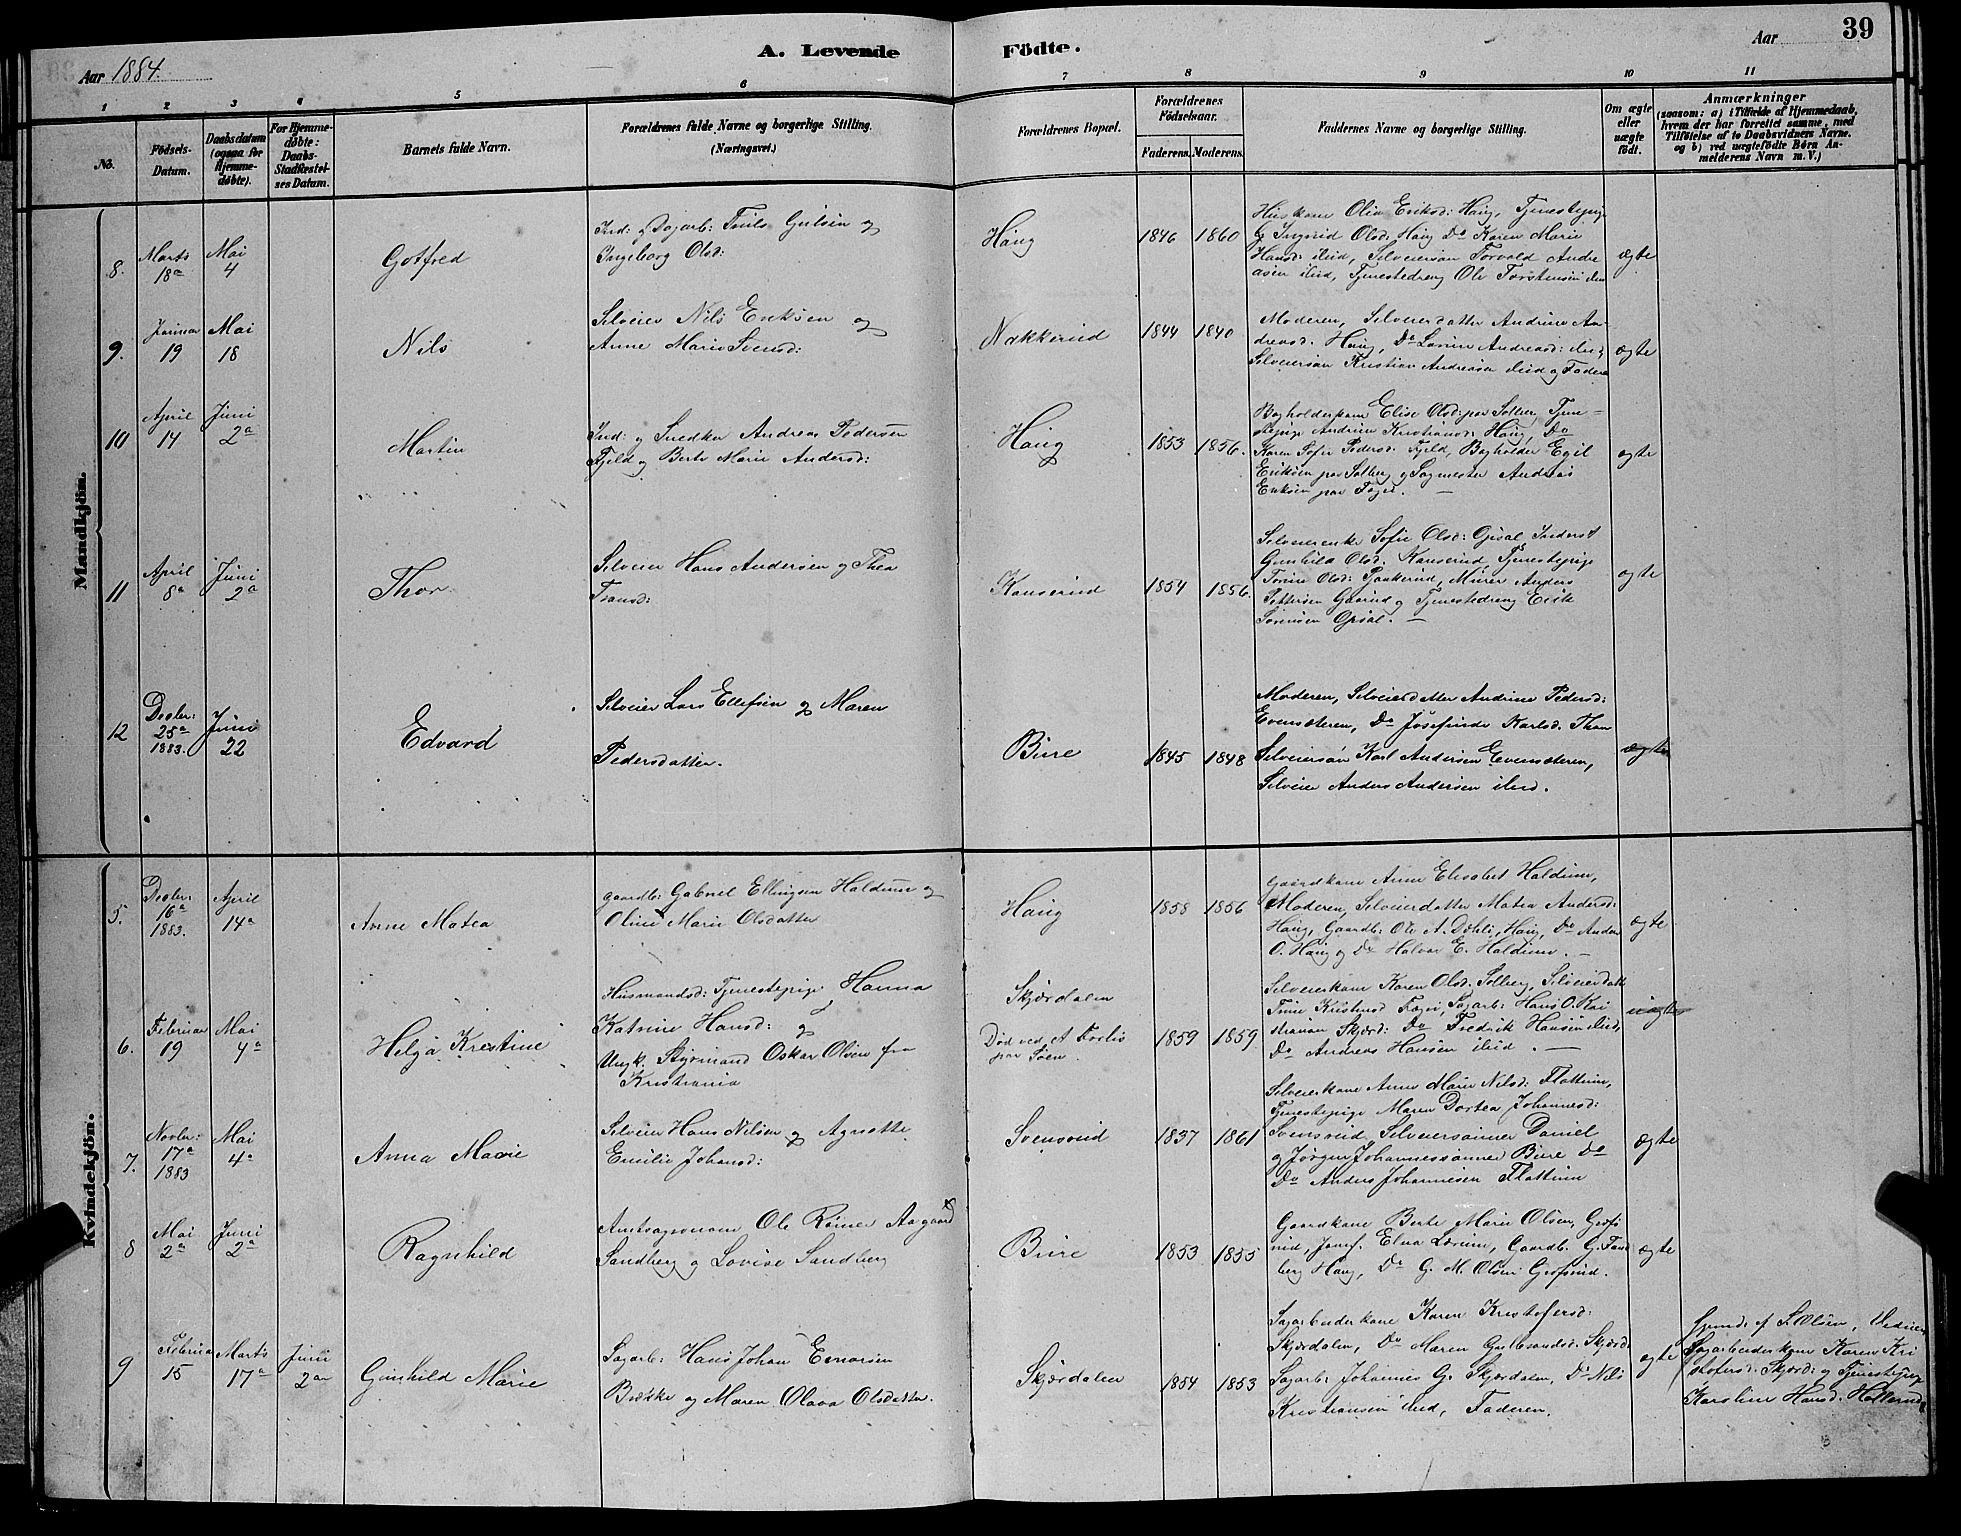 Aar 1884.
A. Levende
Födte.
Aar
39
1
2
3
4
5
6
7
8
9
10
11
No.
Födsels-
Datum.
Daabsdatum
(ogsaa for
Hjemme-
døbte).
For Hjemme-
døbte:
Daabs-
Stadfæstel-
ses Datum.
Barnets fulde Navn.
Forældrenes fulde Navne og borgerlige Stilling.
(Næringsvei.)
Forældrenes Bopæl.
Forældrenes
Födselsaar.
Faderens.
Moderens.
Faddernes Navne og borgerlige Stilling.
Om ægte
eller
uægte
født.
Anmærkninger
(saasom: a) i Tilfælde af Hjemmedaab,
hvem der har forrettet samme, med
Tilföielse af to Daabsvidners Navne.
og b) ved uægtefödte Börn An-
melderens Navn m. V.)
Mandkjön.
8.
Marts
18de
Mai
4
Gotfred
Ind: og Dagarb: Truls Gulsen og
Ingeborg Olsd:
Haug
1846
1860
Huskone Olia Eriksd: Haug, Tjenestepige
G. Ingrid Olsd: Haug Do Karen Marie
Hansd: ibid, Selveiersøn Torvald Andre
asen ibid, Tjenestedreng Ole Torstensen ibid
ægte
9.
Januar
19
Mai
18
Nils
Selveier Nils Eriksen og
Anne Marie Svensd:
Nakkerud
1844
1840
Moderen, Selveierdatter Andrine An-
dreasd. Haug, Do Lovise Andreasd: ibid,
Selveiersøn Kristian Andreasen ibid og Faderen
ægte
10
April
14
Juni
2den
Martin
Ind: og Snedker Andreas Pedersen
Fjeld og Berte Marie Andersd:
Haug
1853
1856.
Bogholderkone Elise Olsd: paa Solberg, Tjene-
stepige Andrine Kristiansd: Haug, Do
Karen Sofie Pedersd: Fjeld, Bogholder Egil
Eriksen paa Solberg og Sagmester Andreas
Eriksen paa
ægte
11
April
8de
Juni
2den
Thor.
Selveier Hans Andersen og Thea
Transd:
Kanserud
1854
1856.
Selveierenke Sofie Olsd: Opsal
Gunhild Olsd. Kanserud, Tjenestepige
Trine Olsd: Murer Anders
Pettersen Gaarud og Tjenestedreng Erik
Sørensen Opsal.
ægte
12
Decber:
25de
1883.
Juni
22
Edvard
Selveier Lars Ellefsen og Maren
Pedersdatter.
Bure
1845
1848
Moderen, Selveierdatter Andrine Pedersd:
Evensæteren, Do Josefine Karlsd.
Selveiersøn Karl Andersen Evensæteren,
Selveier Anders Andersen ibid.
ægte
Kvindekjön.
5.
Decber:
16de
1883.
April
14de
Anne Matea
Gaardb: Gabriel Ellingsen Haldum og
Oline Marie Olsdatter
Haug
1858
1856
Gaardkone Anne Elisabet Haldum,
Moderen, Selveierdatter Matea Andersd:
Haug, Gaardb: Ole A. Dæhli, Haug, Do Anders
O. Haug og Do Halvor E. Haldum.
ægte
6.
Februar
19
Mai
4de
Helga Kristine
Husmandsd: Tjenestepige Hanna
Katrine Hansd: og
Ungk. Styrmand Oskar Olsen fra
Kristiania
Skjørdalen
Død ved et Forlis
paa Søen.
1859
1859
Selveierkone Karen Olsd: Solberg, Selveierdatt
Trine Kristensd Sagarb: Hans O. Kai
Skjørd: Do Fredrik Hansen ibid,
Do Andreas Hansen ibid.
uægte
7.
Novbr:
17de
1883
Mai
4de
Anna Marie
Selveier Hans Nilsen og Agnethe
Emilie Johansd:
Svensrud
1837
1861
Selveierkone Anne Marie Nilsd: Flattum,
Tjenestepige Maren Dortea Johannesd:
Svensrud, Selveiersønner Daniel
og Jørgen Johannessønner Bure Do
Do Anders Johannesen Flattum
ægte
8
Mai
2den
Juni
2den
Ragnhild
Amtsagronom Ole Rømer Aagaard
Sandberg og Lovise Sandberg
Bure
1853
1855
Gaardkone Berte Marie Olsen, Grøfs
rud, Jomf. Elna Lærum, Gaardb. G.
berg Haug, Do G. M. Olsen Grøfsrud.
ægte
9
Februar
15
Marts
17de
Juni
2den
Gunhild Marie
Sagarb: Hans Johan Einarsen
Brække og Maren Olava Olsdatter.
Skjørdalen
1854
1853
Sagarbeiderkone Karen Kristofersd:
Skjørdalen, Do Maren Gulbrandsd. Skjørd:
Sagarb: Johannes G. Skjørdalen, Do Nils
Kristiansen ibid, Faderen.
ægte
Hjemd. af S. Olsen, Vidner
Sagarbeiderkone Karen Kri
stofersd: Skjørd: og Tjenestepige
Karoline Hansd.